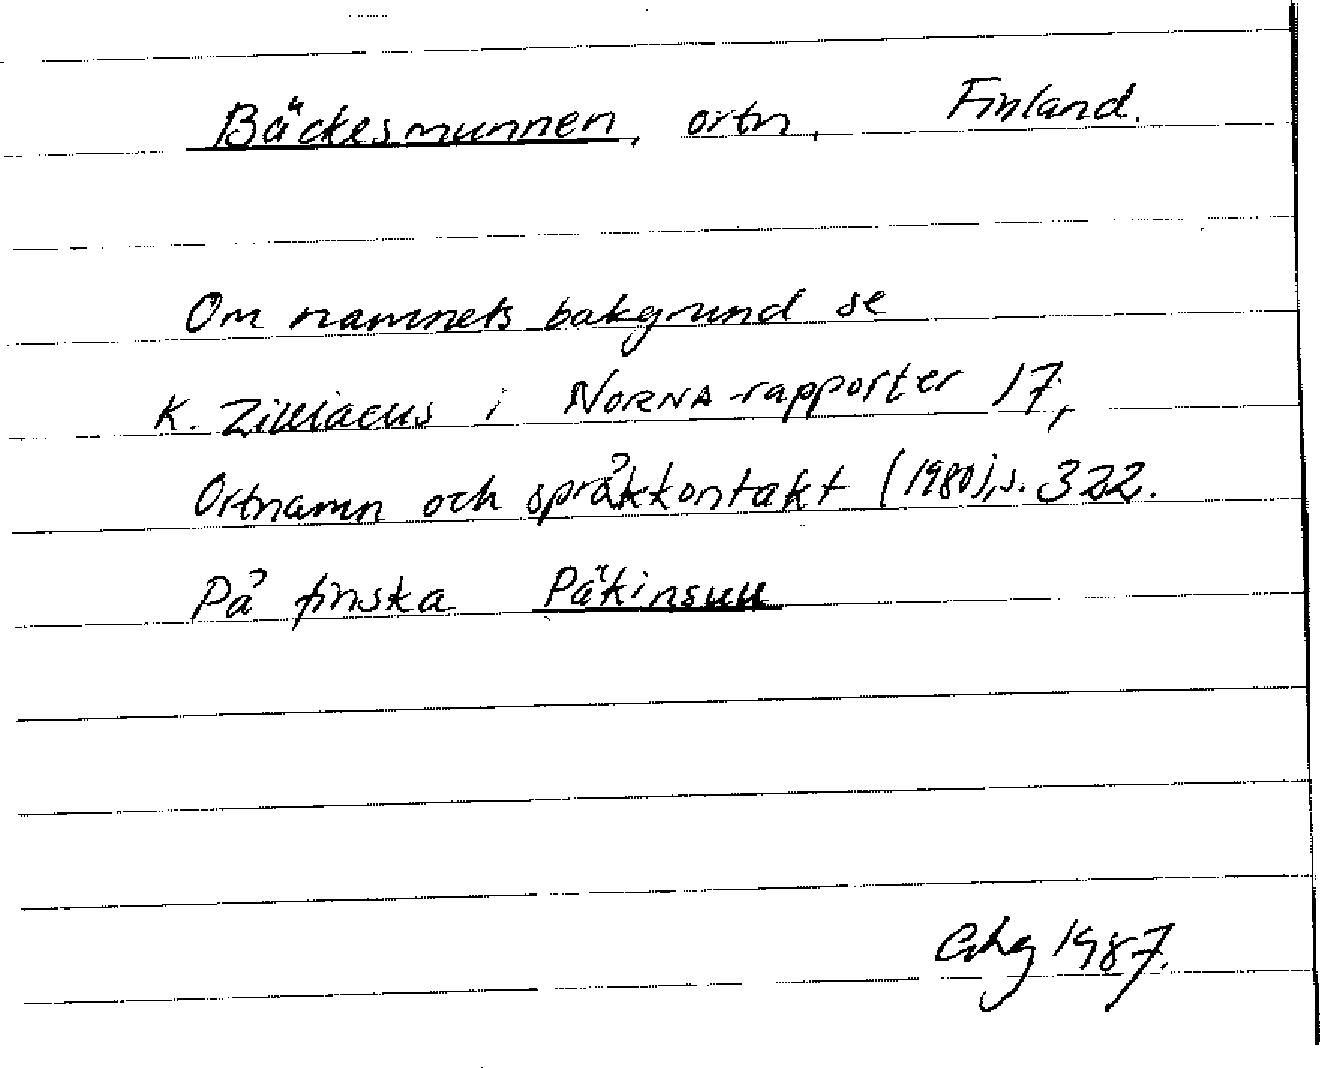 Bäckesmunnen, ortn, Finland.
Om namnets bakgrund se
K. Zilliacus i NORNA-rapporter 17,
Ortnamn och språkkontakt (1980), s. 322.
På finska Päkinsuu
1987.